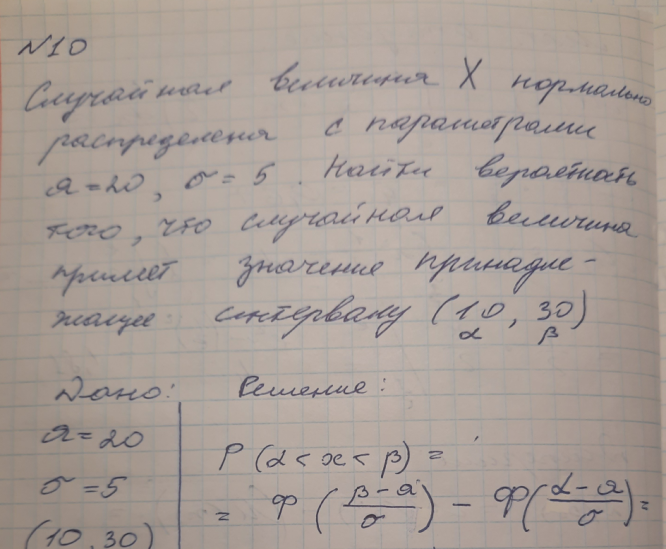 №10
Случайная величина X нормально
распределена с параметрами
a = 20, σ = 5. Найти вероятность
того, что случайная величина
примет значение принадле-
жащее интервалу (10, 30)
α β
Дано: Решение:
a = 20
P (α < x < β) =
σ = 5
= Ф (β - a / σ) - Ф (α - a / σ) =
(10, 30)